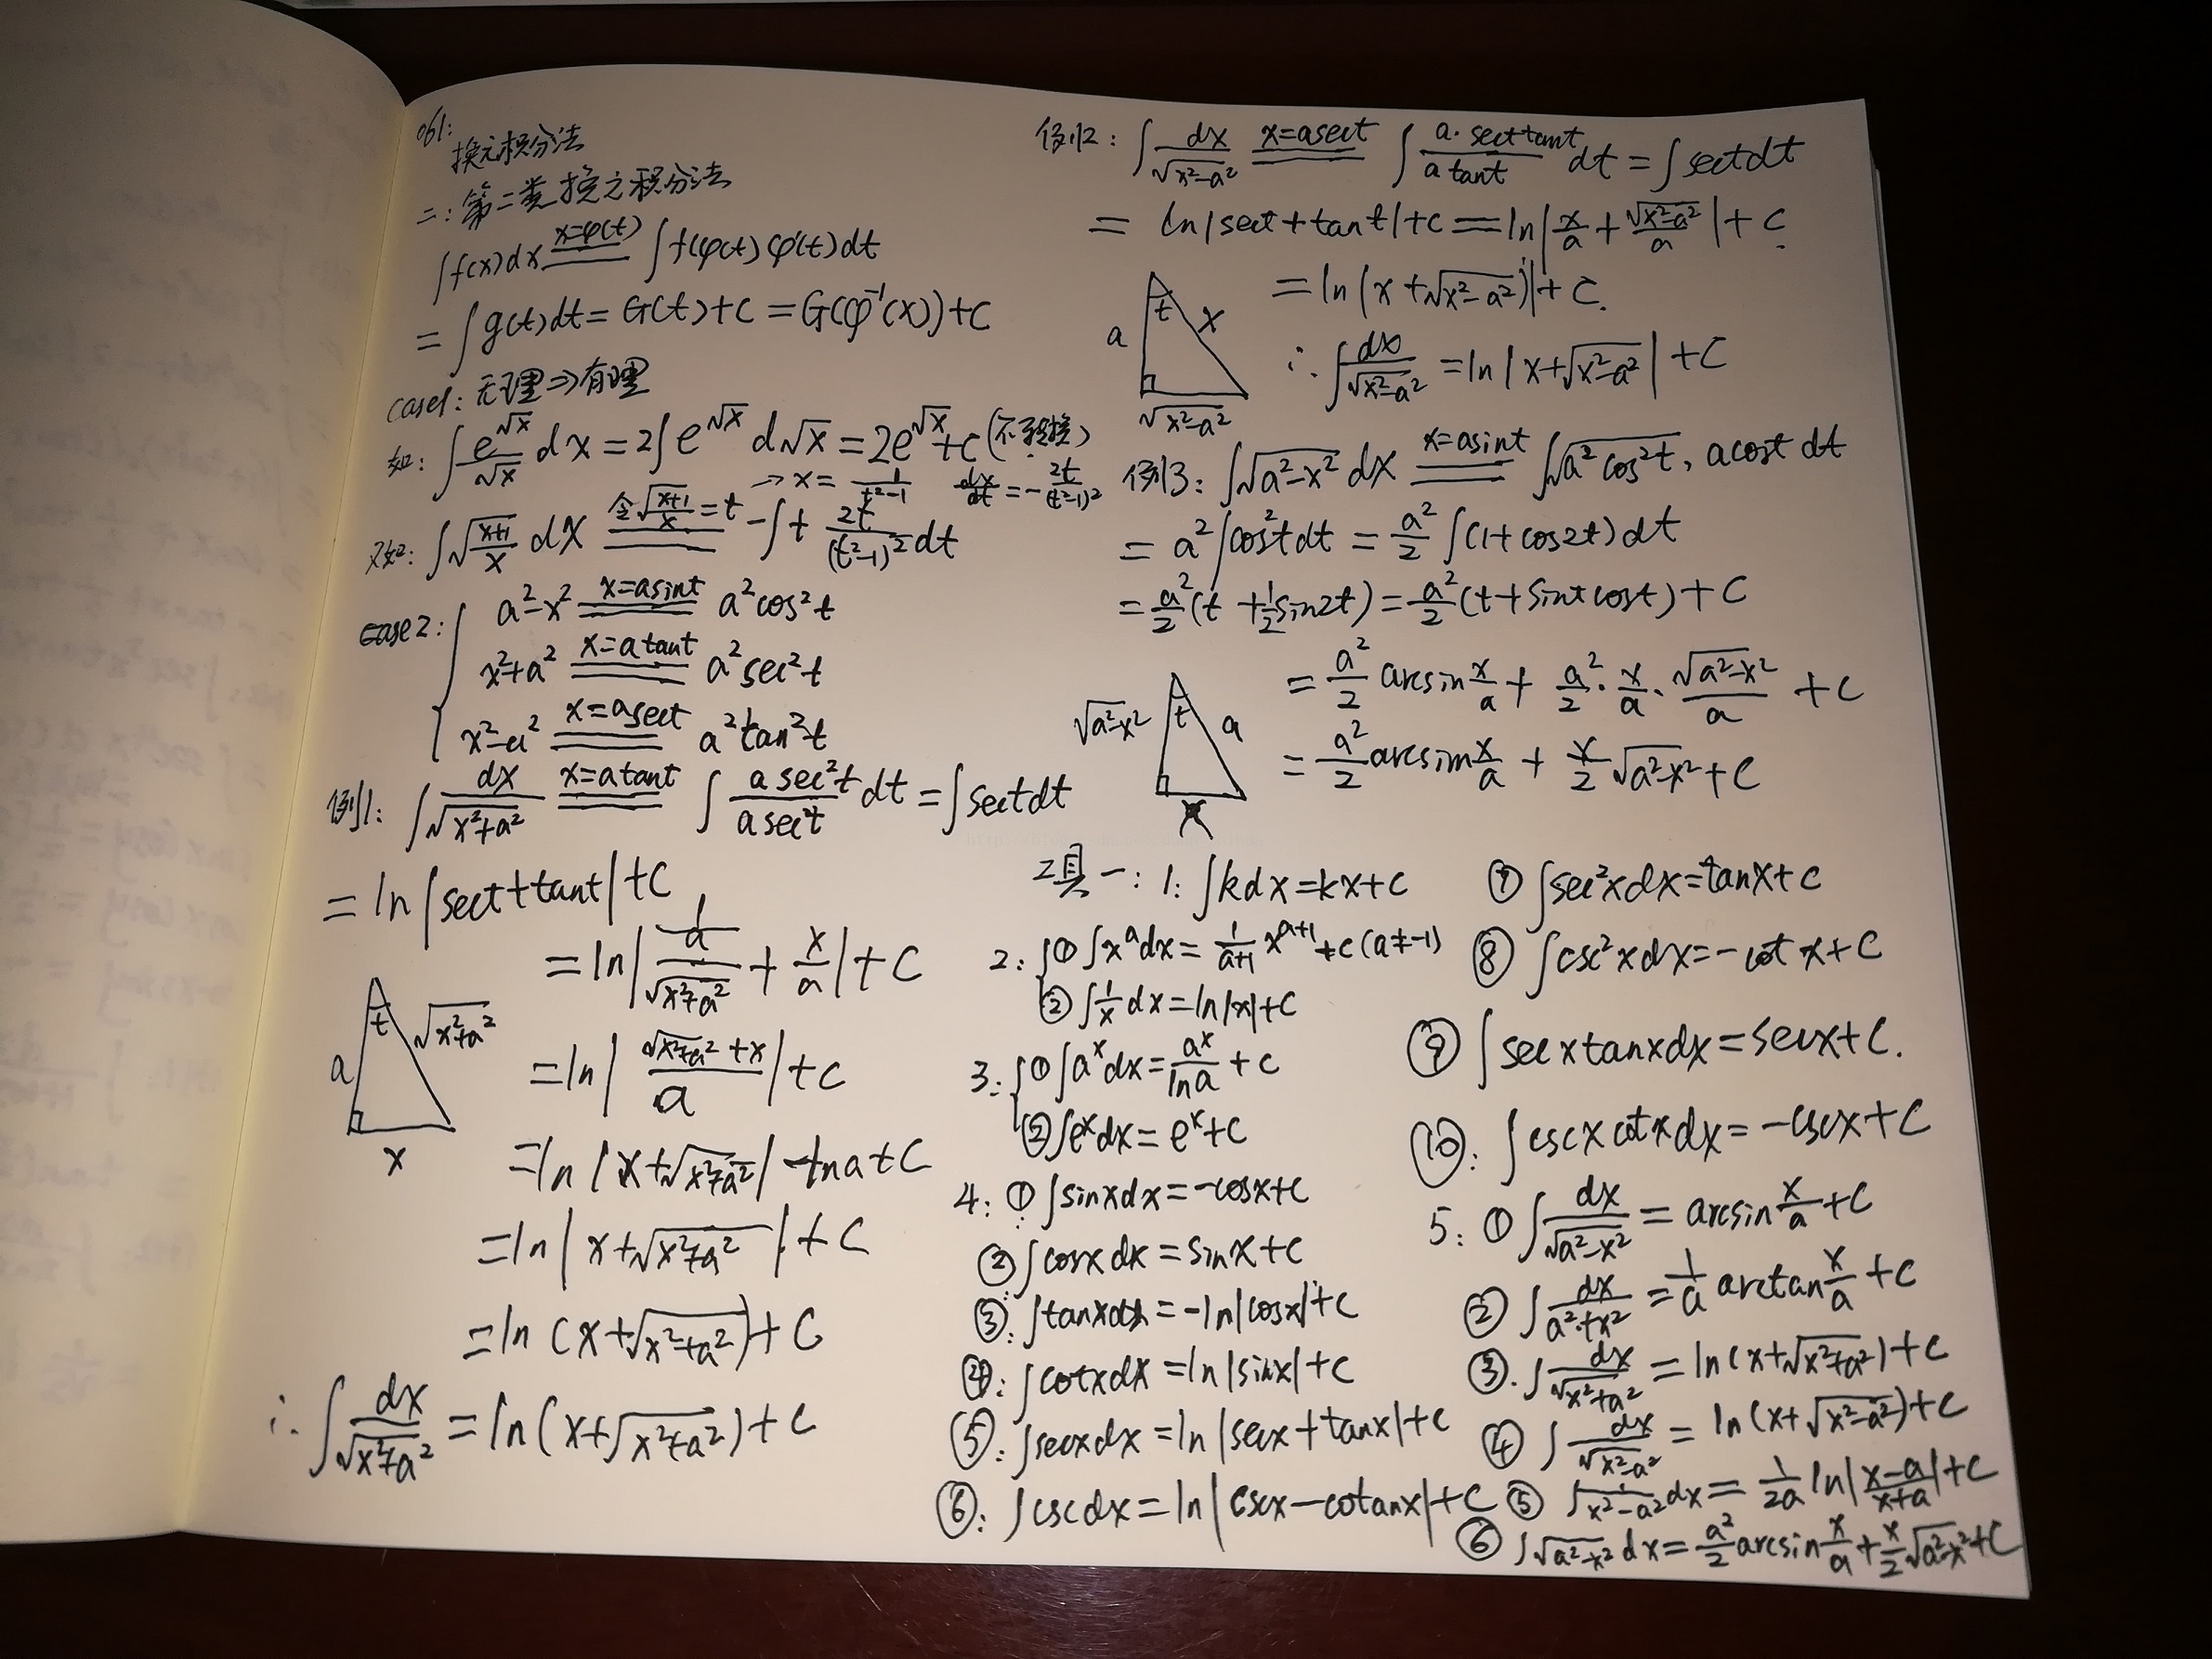 061:
换元积分法
二:第二类换元积分法
∫f(x)dx \xlongequal{x=φ(t)} ∫f(φ(t))φ'(t)dt
= ∫g(t)dt = G(t)+C = G(φ⁻¹(x))+C
case1: 无理⇒有理
如: ∫ e^{√x}/√x dx = 2∫e^{√x} d√x = 2e^{√x}+C (不转换)
→ x = 1/(t²-1) dx/dt = -2t/(t²-1)²
又如: ∫√((x+1)/x) dx \xlongequal{令√((x+1)/x)=t} -∫t 2t/(t²-1)² dt
case2: { a²-x² \xlongequal{x=asint} a²cos²t
x²+a² \xlongequal{x=atant} a²sec²t
x²-a² \xlongequal{x=asect} a²tan²t
例1: ∫ dx/√(x²+a²) \xlongequal{x=atant} ∫ a sec²t/a sect dt = ∫sectdt
= ln|sect+tant|+C
= ln| 1/(a/√(x²+a²)) + x/a |+C
a t √(x²+a²) x
= ln| (√(x²+a²)+x)/a |+C
= ln|x+√(x²+a²)| - lna+C
= ln|x+√(x²+a²)|+C
= ln(x+√(x²+a²))+C
∴ ∫ dx/√(x²+a²) = ln(x+√(x²+a²))+C
例2: ∫ dx/√(x²-a²) \xlongequal{x=asect} ∫ a·sect tant/a tant dt = ∫sectdt
= ln|sect+tant|+C = ln| x/a + √(x²-a²)/a |+C
= ln|x+√(x²-a²)|+C.
a t x √(x²-a²)
∴ ∫ dx/√(x²-a²) = ln|x+√(x²-a²)|+C
例3: ∫√(a²-x²) dx \xlongequal{x=asint} ∫√(a²cos²t), acost dt
= a²∫cos²tdt = a²/2 ∫(1+cos2t)dt
= a²/2 (t+½sin2t) = a²/2 (t+sintcost)+C
= a²/2 arcsin x/a + a²/2 · x/a · √(a²-x²)/a + C
√(a²-x²) t a x
= a²/2 arcsin x/a + x/2 √(a²-x²)+C
工具一: 1: ∫kdx=kx+C
2: { ① ∫x^a dx = 1/(a+1) x^{a+1}+C (a≠-1)
② ∫1/x dx = ln|x|+C
3: { ① ∫a^x dx = a^x/lna + C
② ∫e^x dx = e^x+C
4: ① ∫sinxdx=-cosx+C
② ∫cosxdx=sinx+C
③: ∫tanxdx=-ln|cosx|+C
④: ∫cotxdx=ln|sinx|+C
⑤: ∫secxdx=ln|secx+tanx|+C
⑥: ∫cscdx=ln|cscx-cotanx|+C
⑦ ∫sec²xdx=tanx+C
⑧ ∫csc²xdx=-cotx+C
⑨ ∫secxtanxdx=secx+C.
⑩: ∫cscxcotxdx=-cscx+C
5: ① ∫ dx/√(a²-x²) = arcsin x/a +C
② ∫ dx/(a²+x²) = 1/a arctan x/a +C
③. ∫ dx/√(x²+a²) = ln(x+√(x²+a²))+C
④ ∫ dx/√(x²-a²) = ln(x+√(x²-a²))+C
⑤ ∫ 1/(x²-a²) dx = 1/2a ln|(x-a)/(x+a)|+C
⑥ ∫√(a²-x²) dx = a²/2 arcsin x/a + x/2 √(a²-x²)+C